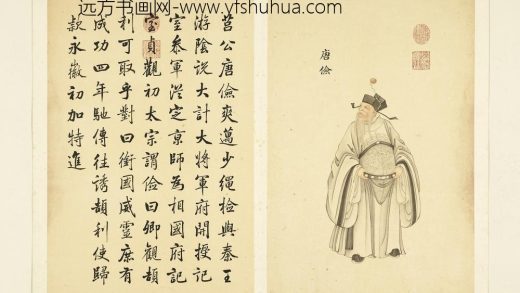 远方书画网-www.yfshuhua.com
唐儉
莒公唐儉爽邁少繩檢與秦王
游陰說大計大將軍府開授記
室參軍從定京師為相國府記
室貞觀初太宗謂儉曰卿觀頡
利可取乎對曰銜國威靈庶有
成功四年馳傳往誘頡利使歸
款永徽初加特進